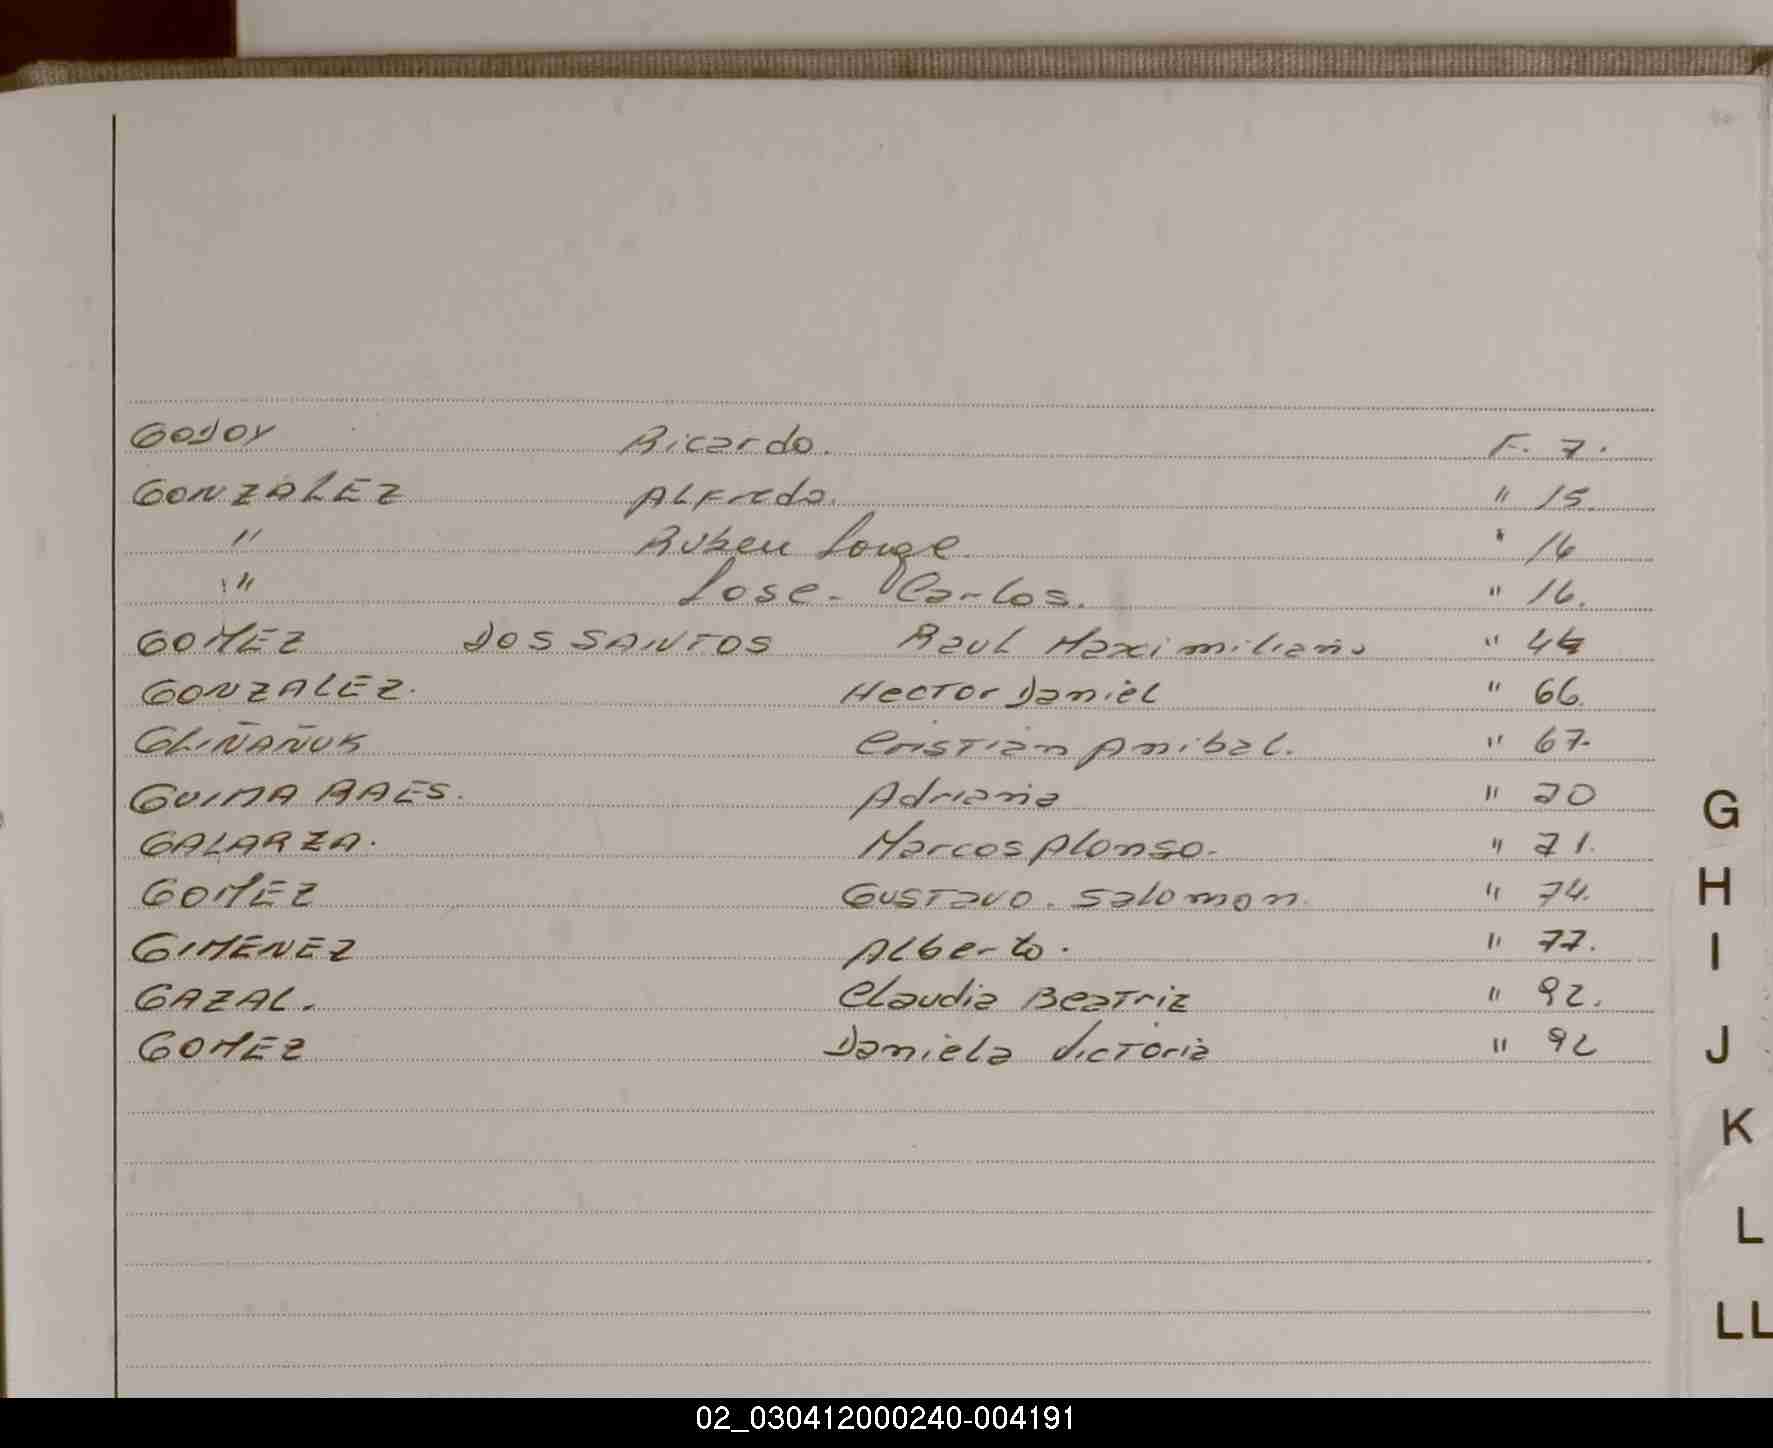 GODOY Ricardo. F. 7.
GONZALEZ ALFredo. " 15.
" Ruben Jorge. " 16
" Jose- Carlos. " 16.
GOMEZ DOS SANTOS Raul Maximiliano " 44
GONZALEZ. Hector Daniel " 66.
GLIÑAÑUK Cristian Anibal. " 67.
GUIMARAES. Adriana " 70
GALARZA. Marcos Alonso. " 71.
GOMEZ Gustavo. Salomon. " 74.
GIMENEZ Alberto. " 77.
GAZAL. Claudia Beatriz " 92.
GOMEZ Daniela Victoria " 92
G
H
I
J
K
L
LL
02_030412000240-004191